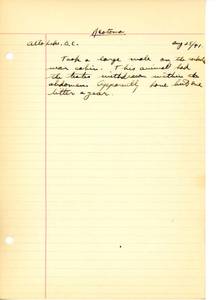 Ochotona
Atlin Lake, B.C. Aug 28/41.
Took a large male on the
near cabin. This animal had
the testes withdrawn within the
abdomen. Apparently have but one
litter a year.